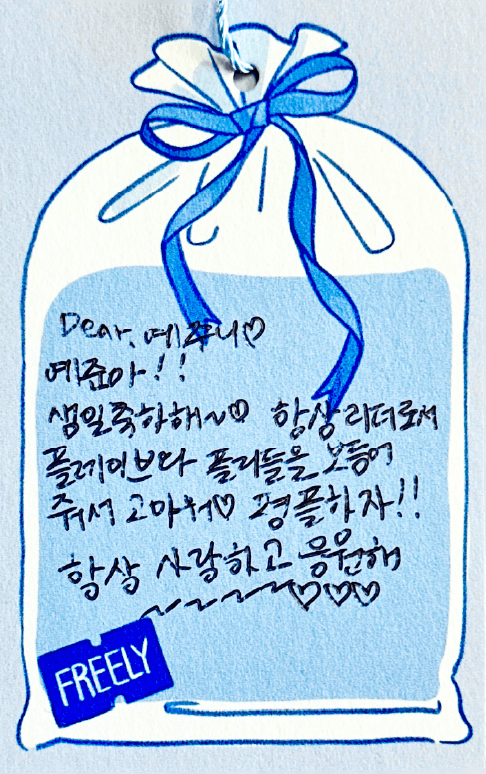 Dear. 예쭈니♡
예준아!!
생일축하해~♡ 항상 리더로서
플레이브와 플리들을 보듬어
줘서 고마워♡ 평플하자!!
항상 사랑하고 응원해
~~~~~♡♡♡
FREELY